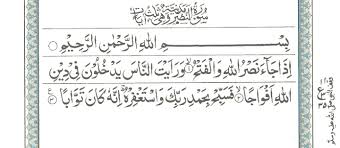 سُوْرَةُ النَّصْرِ مَدَنِيَّةٌ وَّهِىَ ثَلٰثُ اٰيَاتٍ
بِسْمِ اللهِ الرَّحْمٰنِ الرَّحِيْمِ
اِذَا جَآءَ نَصْرُ اللهِ وَالْفَتْحُ ۙ‏﴿۱﴾ وَرَاَيْتَ النَّاسَ يَدْخُلُوْنَ فِىْ دِيْنِ
اللهِ اَفْوَاجًا ۙ‏﴿۲﴾ فَسَبِّحْ بِحَمْدِ رَبِّكَ وَاسْتَغْفِرْهُ ؔ اِنَّهٗ كَانَ تَوَّابًا ﴿۳﴾